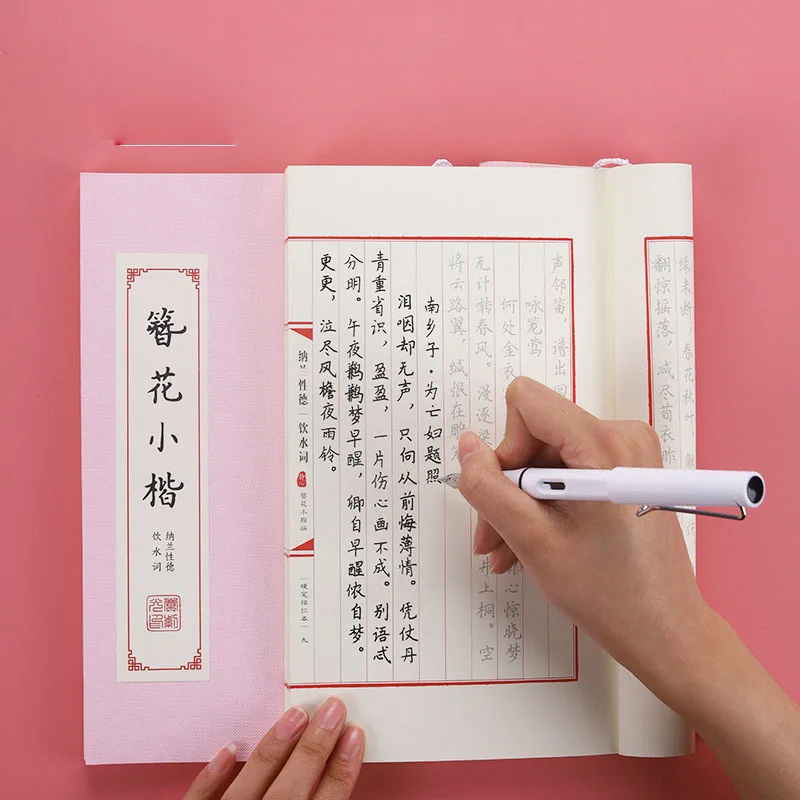 簪花小楷
纳兰性德
饮水词
缘未断。春花秋叶
翻惊摇落,减尽荀衣昨
声邻笛,谱出回
咏笼莺
何处金衣 心惊晓梦
无计啭春风。漫逐梁 井上桐。空
将云路翼,缄恨在雕
南乡子·为亡妇题照
泪咽却无声,只向从前悔薄情。凭仗丹
青重省识,盈盈,一片伤心画不成。别语忒
分明。午夜鹣鹣梦早醒,卿自早醒侬自梦。
更更,泣尽风檐夜雨铃。
纳兰性德|饮水词
簪花小楷版
硬笔描红本 九